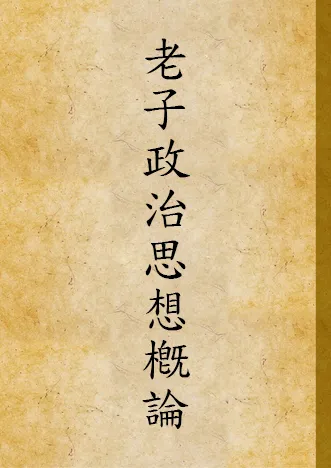 老子政治思想概論